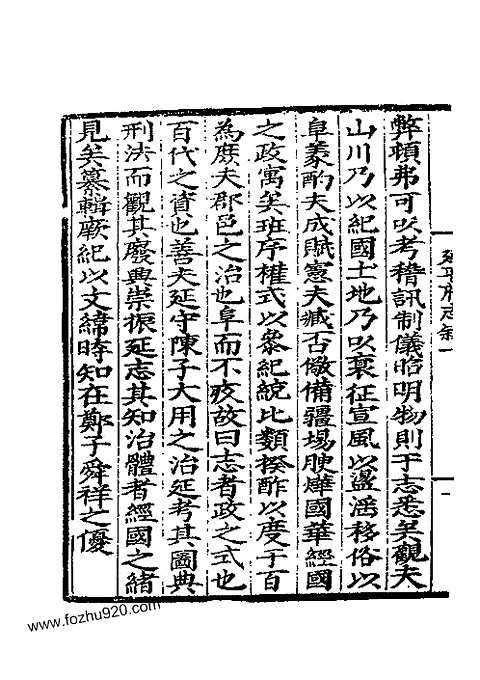 延平府志叙
一
弊頓弗可以考稽訊制儀昭明物則于志悉矣觀夫
山川乃以紀國土地乃以裒征宣風以盪滛移俗以
阜羲酌夫成賦憲夫臧否儆備疆場腴燁國華經國
之政寓矣班序權式以叅紀統比類揆酢以度于百
為庶夫郡邑之治也阜而不疚故曰志者政之式也
百代之資也善夫延守陳子大用之治延考其圖典
刑法而觀其廢興崇振延志其知治體者經國之緒
見矣纂輯厥紀以文緯時知在鄭子舜祥之優
www.fozhu920.com